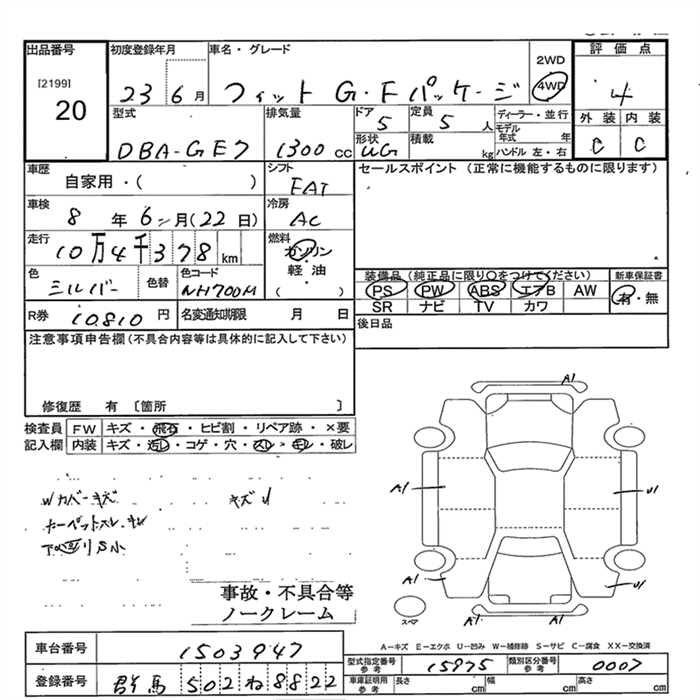 出品番号
[2199]
20
初度登録年月
23 6月
車名・グレード
フィット G・Fパッケージ
2WD
4WD
評価点
4
外装 内装
C C
型式
DBA-GE7
排気量
1300 cc
ドア
5
定員
5 人
ディーラー・並行
モデル年式 年
ハンドル 左・右
形状
UG
積載
kg
車歴
自家用・( )
シフト
FAT
セールスポイント (正常に機能するものに限ります)
車検
8年6月(22日)
冷房
AC
走行
10万4千378 km
燃料
ガソリン
軽油
( )
色
ミルバー
色替
色コード
NH700M
装備品 (純正品に限り○をつけてください)
PS PW ABS エアB AW
SR ナビ TV カワ
新車保証書
有・無
R券 10810円
名変通知期限 月 日
後日品
注意事項申告欄 (不具合内容等は具体的に記入して下さい)
修復歴 有 〔箇所 〕
検査員記入欄
FW キズ・飛石・ヒビ割・リペア跡・×要
内装 キズ・汚レ・コゲ・穴・スレ・キレ・破レ
Wカバーキズ
キズU
カーペットスレ・キレ
下回りS小
事故・不具合等
ノークレーム
A1
A1
U1
A1
U1
A1
A1
スペア
A―キズ E―エクボ U―凹み W―補修跡 S―サビ C―腐食 XX―交換済
車台番号 1503947
型式指定番号 参考 15975
類別区分番号 参考 0007
登録番号 群馬 502 ね 8822
車庫証明用 参考 長さ cm 幅 cm 高さ cm